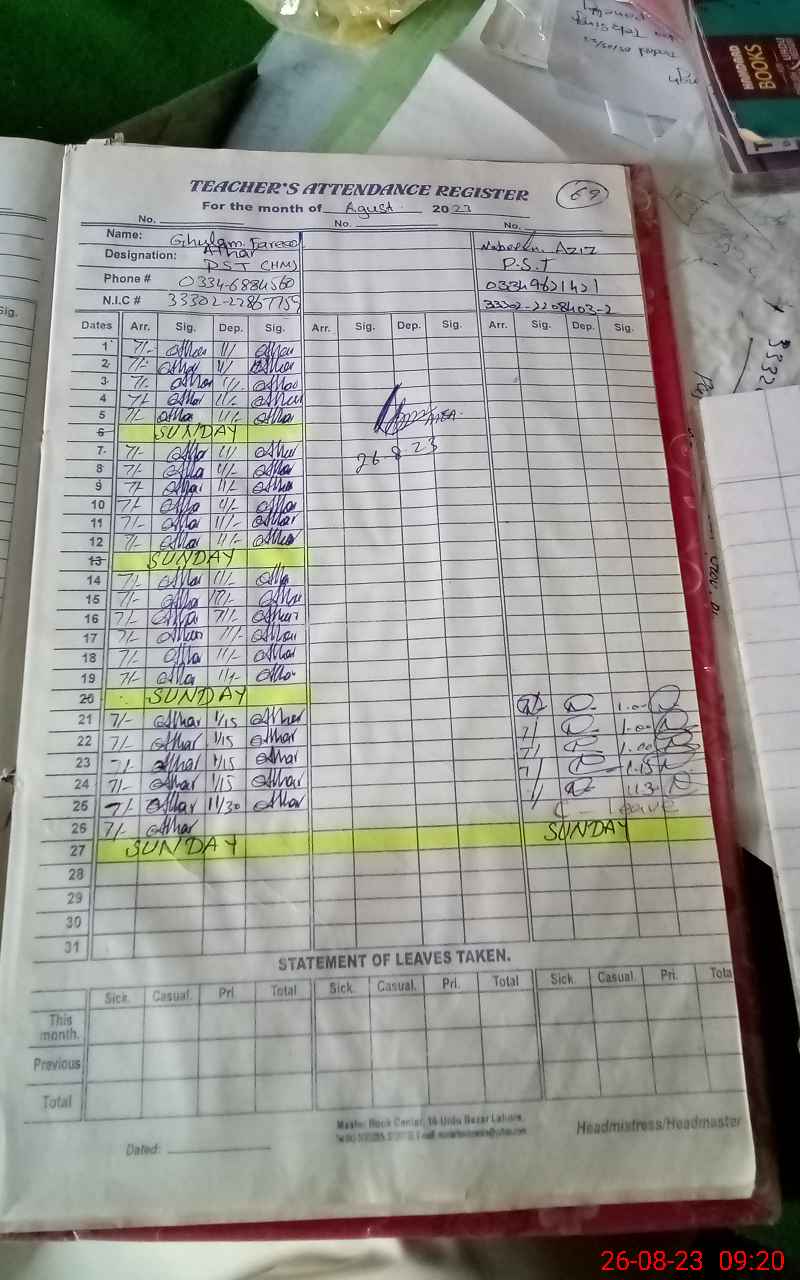 HAMDARD
BOOKS
TEACHER'S ATTENDANCE REGISTER
69
For the month of Agust. 2023
No. No. No.
Name: Ghulam Fareed Nabeela Aziz
Athar
Designation: PST (HM) P.S.T
Phone # 0334-6884560 03349621421
N.I.C # 33302-2208403-2
Dates Arr. Sig. Dep. Sig. Arr. Sig. Dep. Sig. Arr. Sig. Dep. Sig.
1 7/- Athar 11/- Athar
2 7/- Athar 11/- Athar
3 7/- Athar 11/- Athar
4 7/- Athar 11/- Athar
5 7/- Athar 11/- Athar
6 SUNDAY
7 7/- Athar 11/- Athar
26-8-23
8 7/- Athar 11/- Athar
9 7/- Athar 11/- Athar
10 7/- Athar 11/- Athar
11 7/- Athar 11/- Athar
12 7/- Athar 11/- Athar
13 SUNDAY
14 7/- Athar 11/- Athar
15 7/- Athar 11/- Athar
16 7/- Athar Athar
17 7/- Athar Athar
18 7/- Athar 11/- Athar
19 7/- Athar 11/- Athar
20 SUNDAY
21 7/- Athar 1/15 Athar 1.00
22 7/- Athar 1/15 Athar 7/ 1.00
23 7/- Athar 1/15 Athar 7/ 1.00
24 7/- Athar 1/15 Athar 1.15
25 7/- Athar 11/30 Athar 11.3
26 7/- Athar C - Leave
27 SUNDAY SUNDAY
28
29
30
31
STATEMENT OF LEAVES TAKEN.
Sick. Casual. Pri. Total Sick. Casual. Pri. Total Sick. Casual. Pri. Tota
This
month.
Previous
Total
Master Book Center, 16 Urdu Bazar Lahore.
Dated: Headmistress/Headmaster
26-08-23 09:20